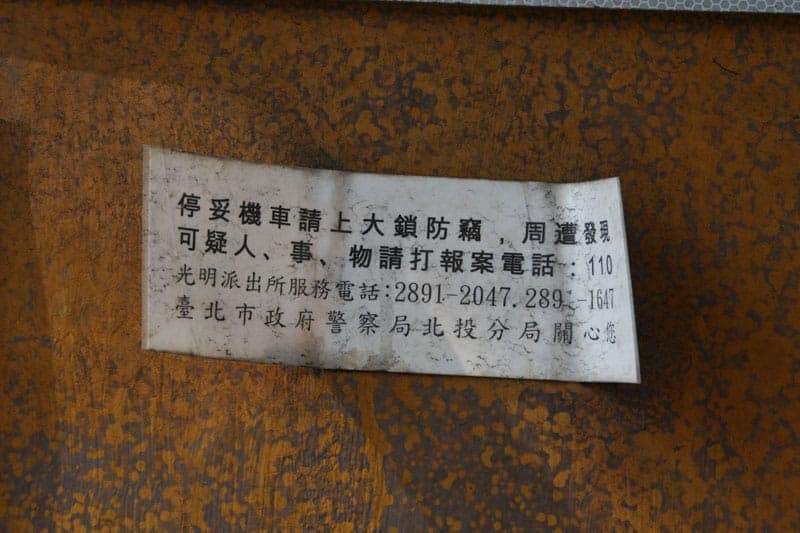 停妥機車請上大鎖防竊，周遭發現
可疑人、事、物請打報案電話：110
光明派出所服務電話：2891-2047.289 -1647
臺北市政府警察局北投分局關心您